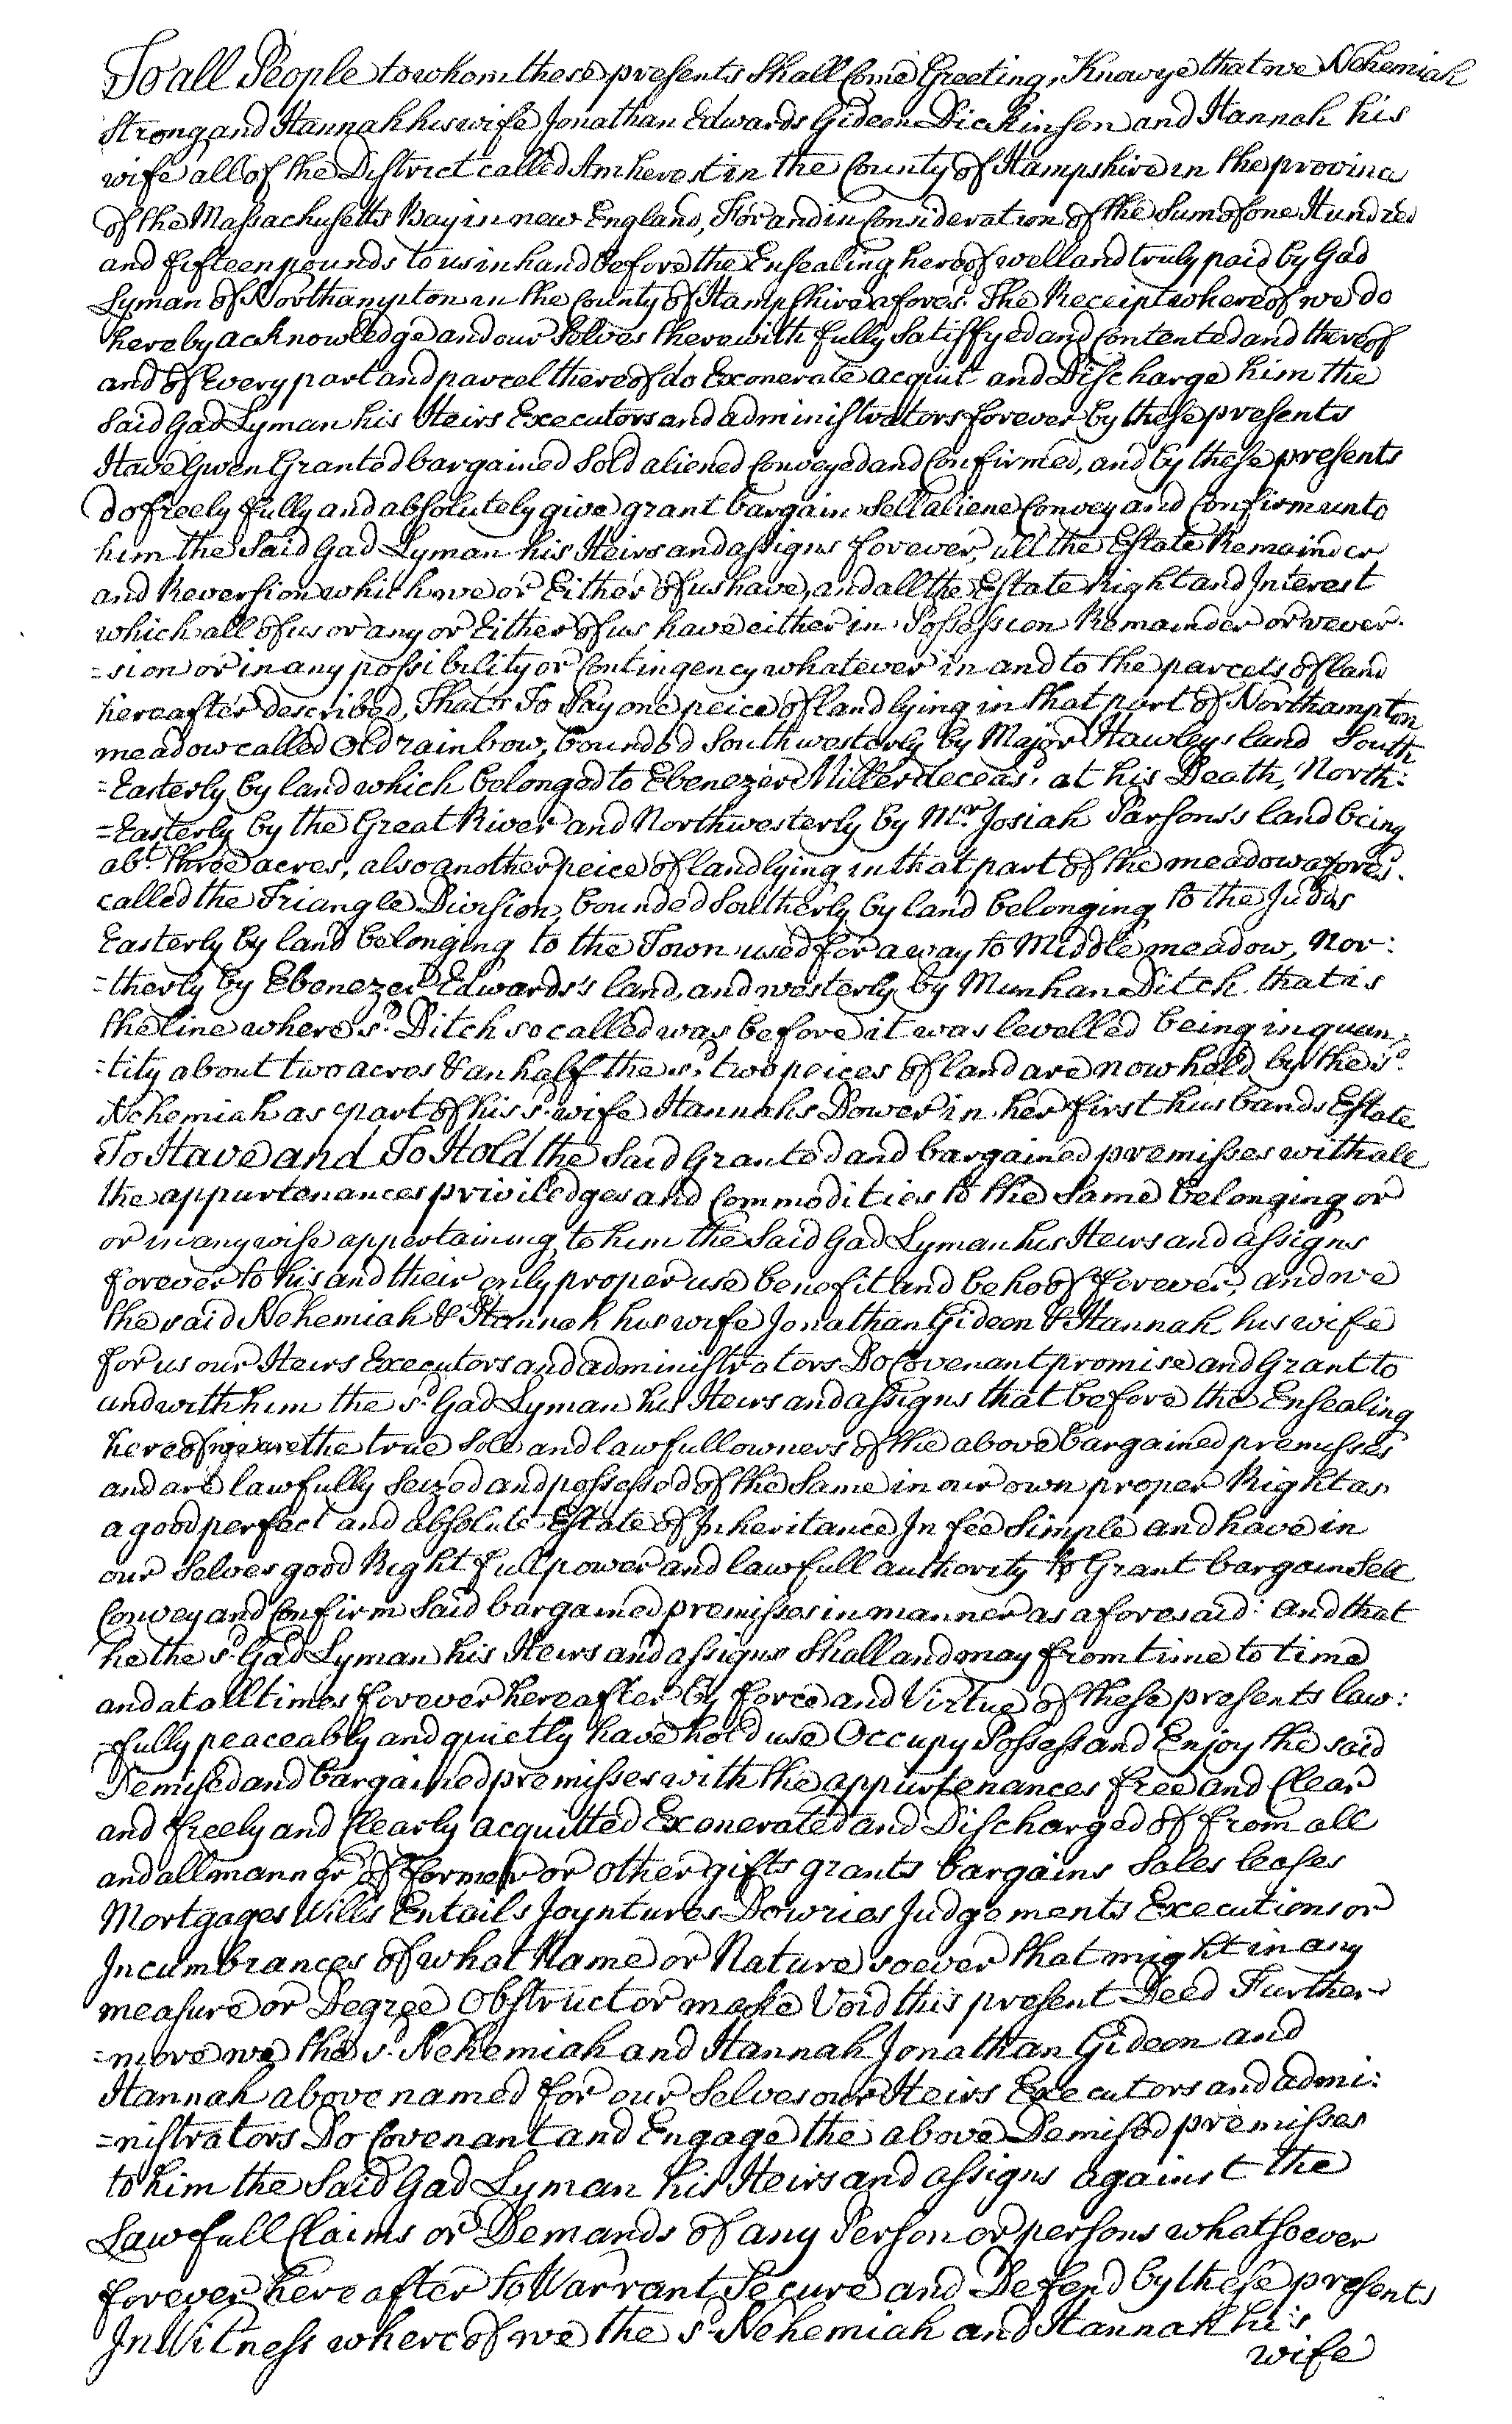 To all People to whom these presents Shall Come Greeting, Know ye that we Nehemiah
Strong and Hannah his wife Jonathan Edwards Gideon Dickinson and Hannah his
wife all of the District called Amherst in the County of Hampshire in the province
of the Massachusetts Bay in new England, For and in Consideration of the Sum of one Hundred
and fifteen pounds to us in hand before the Ensealing hereof well and truly paid by Gad
Lyman of Northampton in the County of Hampshire afores.d The Receipt whereof we do
hereby acknowledge and our Selves therewith fully Satisfyed and Contented and thereof
and of Every part and parcel thereof do Exonerate acquit and Discharge him the
Said Gad Lyman his Heirs Executors and administrators forever by these presents
Have Given Granted bargained Sold aliened Conveyed and Confirmed, and by these presents
do freely fully and absolutely give grant bargain Sell aliene Convey and Confirm unto
him the Said Gad Lyman his Heirs and assigns forever, all the Estate Remainder
and Reversion which we or Either of us have, and all the Estate Right and Interest
which all of us or any or Either of us have either in Possession Remainder or rever-
=sion or in any possibility or Contingency whatever in and to the parcels of land
hereafter described, That is To Say one peice of land lying in that part of Northampton
meadow called Old rainbow, bounded Southwesterly by Major Hawleys land South
=Easterly by land which belonged to Ebenezer Miller deceas.d at his Death, North:
=Easterly by the Great River and Northwesterly by Mr. Josiah Parsons's land being
ab.t three acres, also another peice of land lying in that part of the meadow afores.d
called the Triangle Division, bounded Southerly by land belonging to the Judds
Easterly by land belonging to the Town used for a way to Middle meadow, Nor:
=therly by Ebenezer Edwards's land, and westerly by Munhan Ditch that is
the line where s.d Ditch so called was before it was levelled being in quan:
=tity about two acres & an half the s.d two peices of land are now held by the s.d
Nehemiah as part of his s.d wife Hannahs Dower in her first husbands Estate
To Have and To Hold the Said Granted and bargained premisses with all
the appurtenances priviledges and Commodities to the Same belonging or
or in any wise appertaining to him the Said Gad Lyman his Heirs and assigns
forever to his and their only proper use benefit and behoof forever, and we
the said Nehemiah & Hannah his wife Jonathan Gideon & Hannah his wife
for us our Heirs Executors and administrators Do Covenant promise and Grant to
and with him the s.d Gad Lyman his Heirs and assigns that before the Ensealing
hereof we are the true Sole and lawfull owners of the above bargained premisses
and are lawfully Seized and possessed of the Same in our own proper Right as
a good perfect and absolute Estate of Inheritance In fee Simple and have in
our Selves good Right full power and lawfull authority to Grant bargain Sell
Convey and Confirm Said bargained premisses in manner as aforesaid: and that
he the s.d Gad Lyman his Heirs and assigns Shall and may from time to time
and at all times forever hereafter by force and Virtue of these presents law:
=fully peaceably and quietly have hold use Occupy Possess and Enjoy the said
Demised and bargained premisses with the appurtenances free and Clear
and freely and Clearly acquitted Exonerated and Discharged of from all
and all manner of former or other gifts grants bargains Sales leases
Mortgages Wills Entails Joyntures Dowries Judgements Executions or
Incumbrances of what Name or Nature soever that might in any
measure or Degree Obstruct or make Void this present Deed Further-
=more we the s.d Nehemiah and Hannah Jonathan Gideon and
Hannah above named for our Selves our Heirs Executors and admi:
=nistrators Do Covenant and Engage the above Demised premisses
to him the Said Gad Lyman his Heirs and assigns against the
Lawfull Claims or Demands of any Person or persons whatsoever
forever hereafter to Warrant Secure and Defend by these presents
In Witness whereof we the s.d Nehemiah and Hannah his
wife